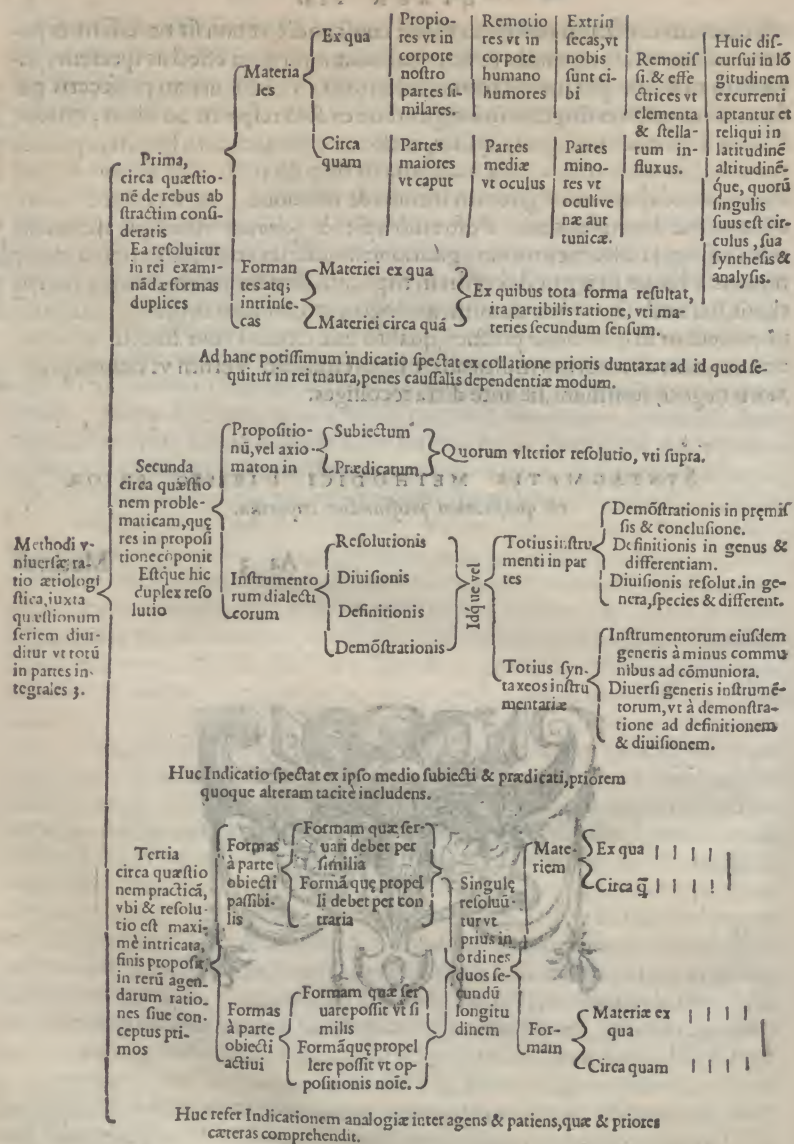 Methodi v-
niuersæ ra-
tio ætiologi
stica, iuxta
quæstionum
seriem diui-
ditur vt totũ
in partes in-
tegrales 3.
Prima,
circa quæstio-
nẽ de rebus ab
stractim consi-
deratis
Ea resoluitur
in rei exami-
nãdæ formas
duplices
Materia
les
Ex qua
Propio-
res vt in
corpore
nostro
partes si-
milares.
Remotio
res vt in
corpore
humano
humores
Extrin
secas, vt
nobis
sunt ci-
bi
Circa
quam
Partes
maiores
vt caput
Partes
mediæ
vt oculus
Partes
mino-
res vt
oculi ve
næ aut
tunicæ.
Remotis
si. & effe
ctrices vt
elementa
& stella-
rum in-
fluxus.
Huic dis-
cursui in lõ
gitudinem
excurrenti
aptantur et
reliqui in
latitudinẽ
altitudinẽ-
q́ue, quorũ
singulis
suus est cir-
culus, sua
synthesis &
analysis.
Forman
tes atq;
intrinse-
cas
Materiei ex qua
Materiei circa quã
Ex quibus tota forma resultat,
ita partibilis ratione, vti ma-
teries secundum sensum.
Ad hanc potissimum indicatio spectat ex collatione prioris duntaxat ad id quod se-
quitur in rei tnaura, penes caussalis dependentiæ modum.
Secunda
circa quæstio
nem proble-
maticam, quę
res in proposi
tione cõponit
Estque hic
duplex reso
lutio
Propositio-
nũ, vel axio-
maton in
Subiectum
Prædicatum
Quorum vlterior resolutio, vti supra.
Instrumento
rum dialecti
corum
Resolutionis
Diuisionis
Definitionis
Demõstrationis
Idque vel
Totius instru
menti in par
tes
Demõstrationis in pręmis
sis & conclusione.
Definitionis in genus &
differentiam.
Diuisionis resolut. in ge-
nera, species & different.
Totius syn-
taxeos instru
mentariæ
Instrumentorum eiusdem
generis à minus commu
nibus ad cõmuniora.
Diuersi generis instrumẽ-
torum, vt à demonstra-
tione ad definitionem
& diuisionem.
Huc Indicatio spectat ex ipso medio subiecti & prædicati, priorem
quoque alteram tacitè includens.
Tertia
circa quæstio
nem practicã,
vbi & resolu-
tio est maxi-
mè intricata,
finis propositi,
in rerũ agen-
darum ratio-
nes siue con-
ceptus pri-
mos
Formas
à parte
obiecti
passibi-
lis
Formam quæ ser-
uari debet per
similia
Formã quę propel
li debet per con
traria
Formas
à parte
obiecti
actiui
Formam quæ ser
uare possit vt si
milis
Formãque propel
lere possit vt op-
positionis noĩe.
Singulę
resoluũ-
tur vt
prius in
ordines
duos se-
cundũ
longitu
dinem
Mate-
riem
Ex qua
Circa q̃
For-
mam
Materiæ ex
qua
Circa quam
Huc refer Indicationem analogiæ inter agens & patiens, quæ & priores
cæteras comprehendit.